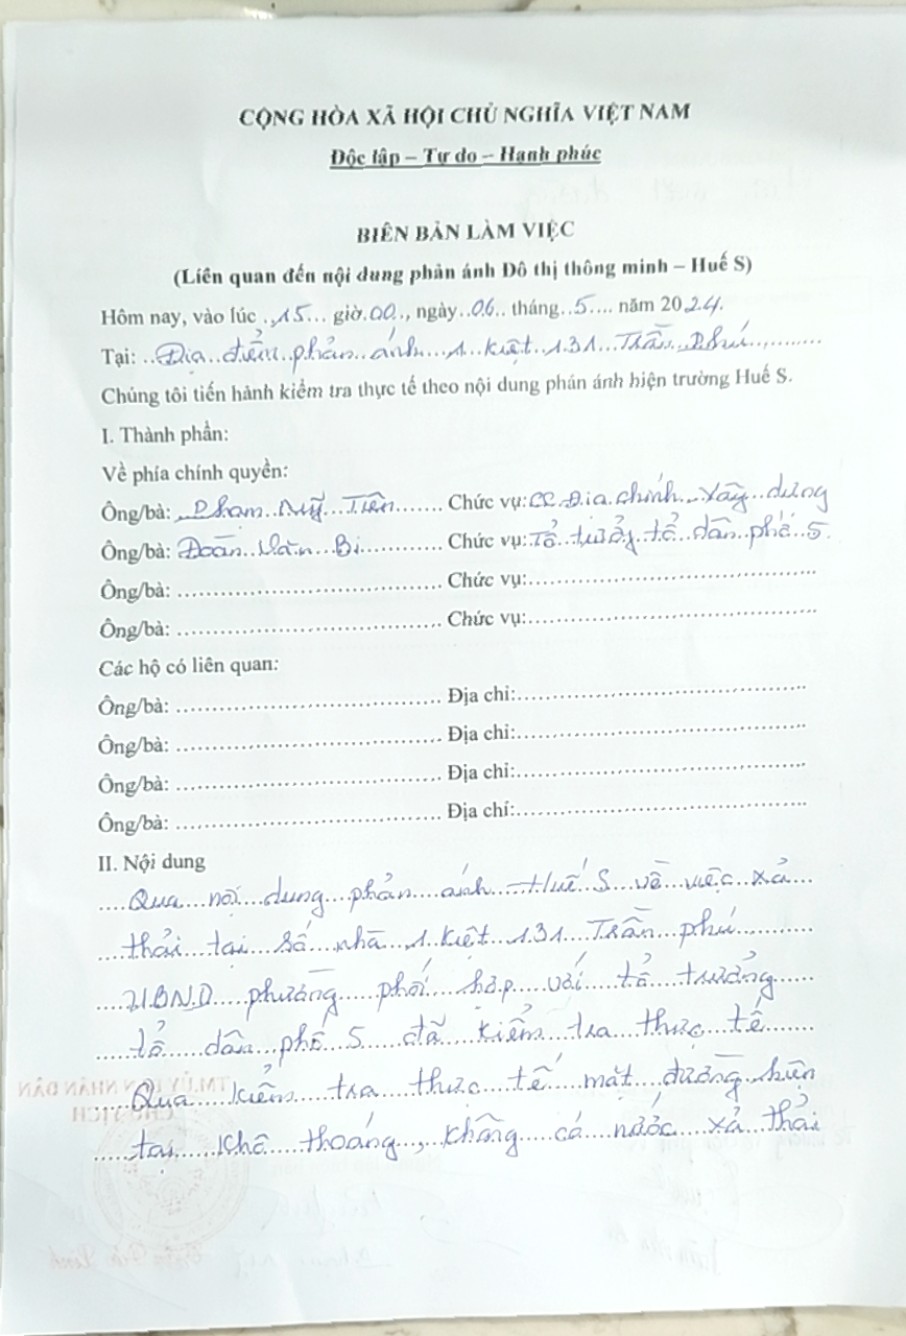 CỘNG HÒA XÃ HỘI CHỦ NGHĨA VIỆT NAM
Độc lập – Tự do – Hạnh phúc
BIÊN BẢN LÀM VIỆC
(Liên quan đến nội dung phản ánh Đô thị thông minh – Huế S)
Hôm nay, vào lúc ..15... giờ.00.., ngày..06.. tháng..5.... năm 2024.
Tại: ..Địa điểm phản ánh 1 kiệt 131 Trần Phú.........
Chúng tôi tiến hành kiểm tra thực tế theo nội dung phản ánh hiện trường Huế S.
I. Thành phần:
Về phía chính quyền:
Ông/bà: Phạm Mỹ Tiên....... Chức vụ: CC Địa chính Xây dựng
Ông/bà: Đoàn Văn Bi........... Chức vụ: Tổ trưởng tổ dân phố 5
Ông/bà: ........................................ Chức vụ:............................................
Ông/bà: ........................................ Chức vụ:............................................
Các hộ có liên quan:
Ông/bà: ........................................ Địa chỉ:............................................
Ông/bà: ........................................ Địa chỉ:............................................
Ông/bà: ........................................ Địa chỉ:............................................
Ông/bà: ........................................ Địa chỉ:............................................
II. Nội dung
Qua nội dung phản ánh Huế S về việc xả
thải tại số nhà 1 kiệt 131 Trần phú
UBND phường phối hợp với tổ trưởng
tổ dân phố 5 đã kiểm tra thực tế
Qua kiểm tra thực tế mặt đường hiện
tại khô thoáng, không có nước xả thải